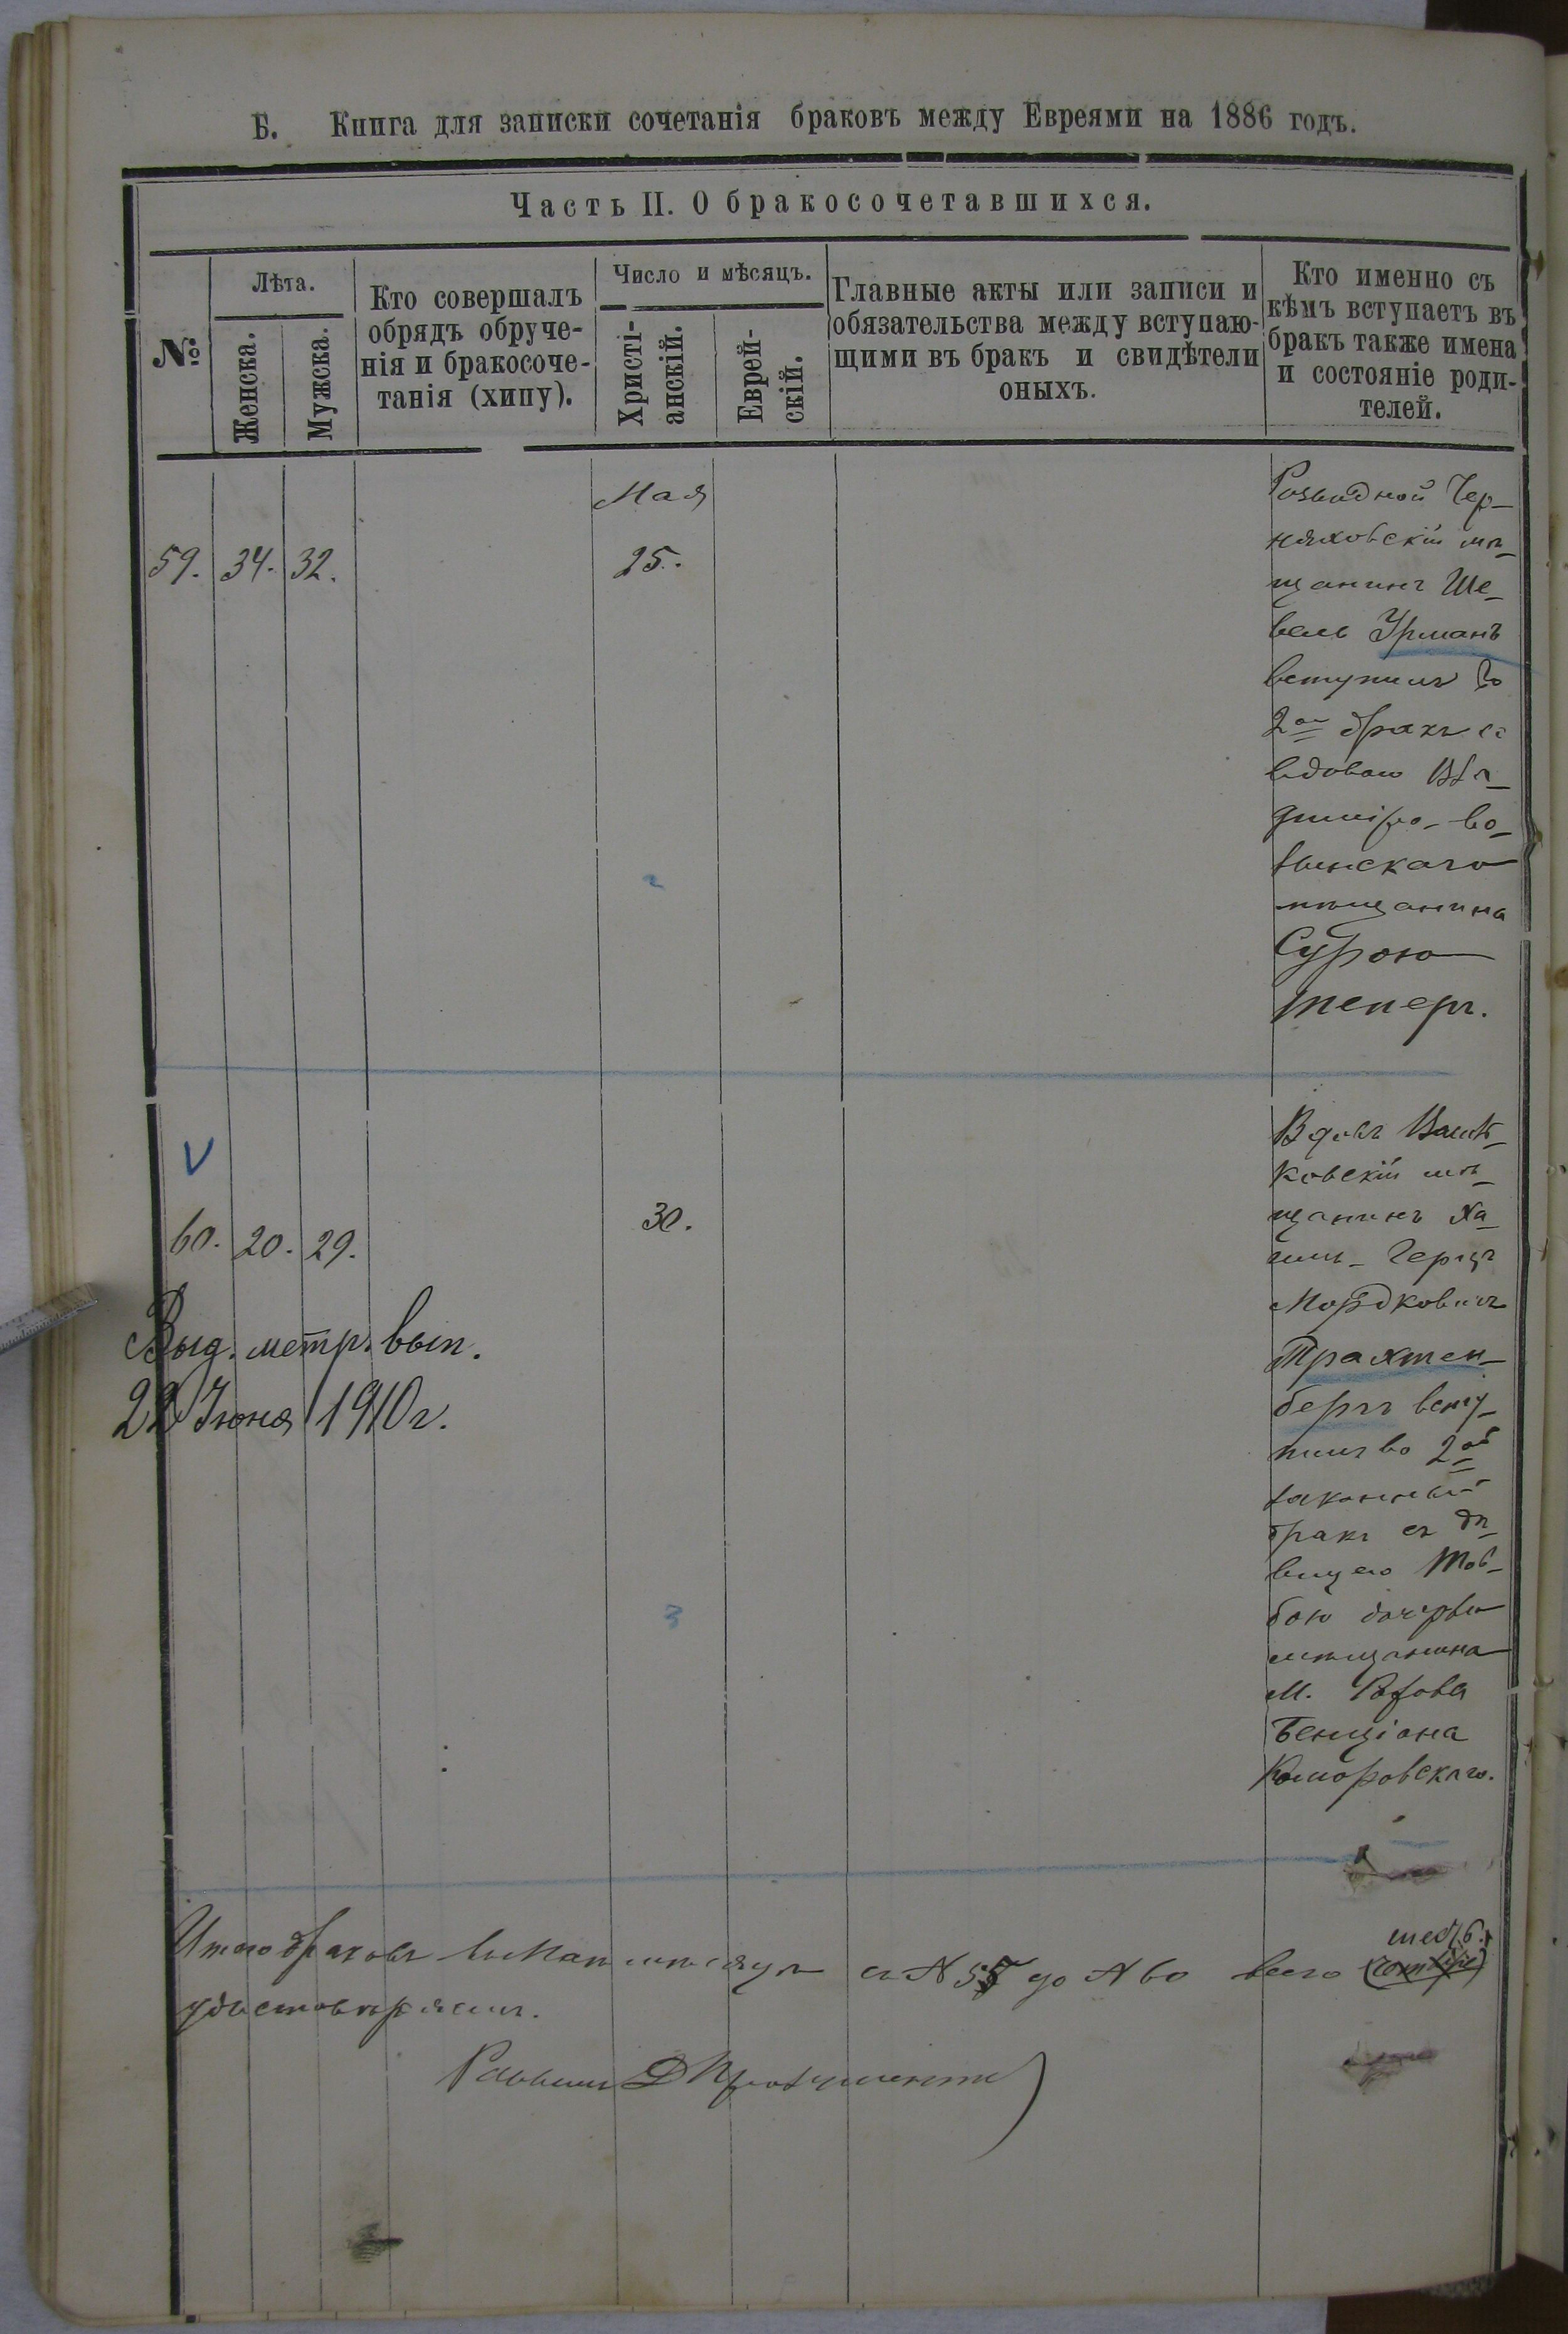 Б. Книга для записки сочетанія браковъ между Евреями на 1886 годъ.
Часть II. О бракосочетавшихся.
№
Лѣта.
Женска.
Мужска.
Кто совершалъ
обрядъ обруче-
нія и бракосоче-
танія (хипу).
Число и мѣсяцъ.
Христі-
анскій.
Еврей-
скій.
Главные акты или записи и
обязательства между вступаю-
щими въ бракъ и свидѣтели
оныхъ.
Кто именно съ
кѣмъ вступаетъ въ
бракъ также имена
и состояніе роди-
телей.
Мая
59. 34. 32. 25.
Розводной Чер-
няховскій мѣ-
щанинъ Ше-
вель Урманъ
вступилъ во
2ой бракъ съ
вдовою Вла-
диміро-во-
лынскаго
мѣщанина
Сурою
Теперъ.
V
60. 20. 29. 30.
Выд. метр. вып.
22 Іюня 1910 г.
Вдовъ
ковскій мѣ-
щанинъ Ха-
имъ-Герцъ
Мордковичъ
Трахтен-
бергъ всту-
пилъ во 2ой
законный
бракъ съ дѣ-
вицею Тов-
бою дочерью
мѣщанина
м.
Бенціона
Коморовскаго.
2
3
Итого браковъ въ Маѣ мѣсяцѣ съ № 55 до № 60 всего шесть 6.
удостовѣряемъ.
Раввинъ